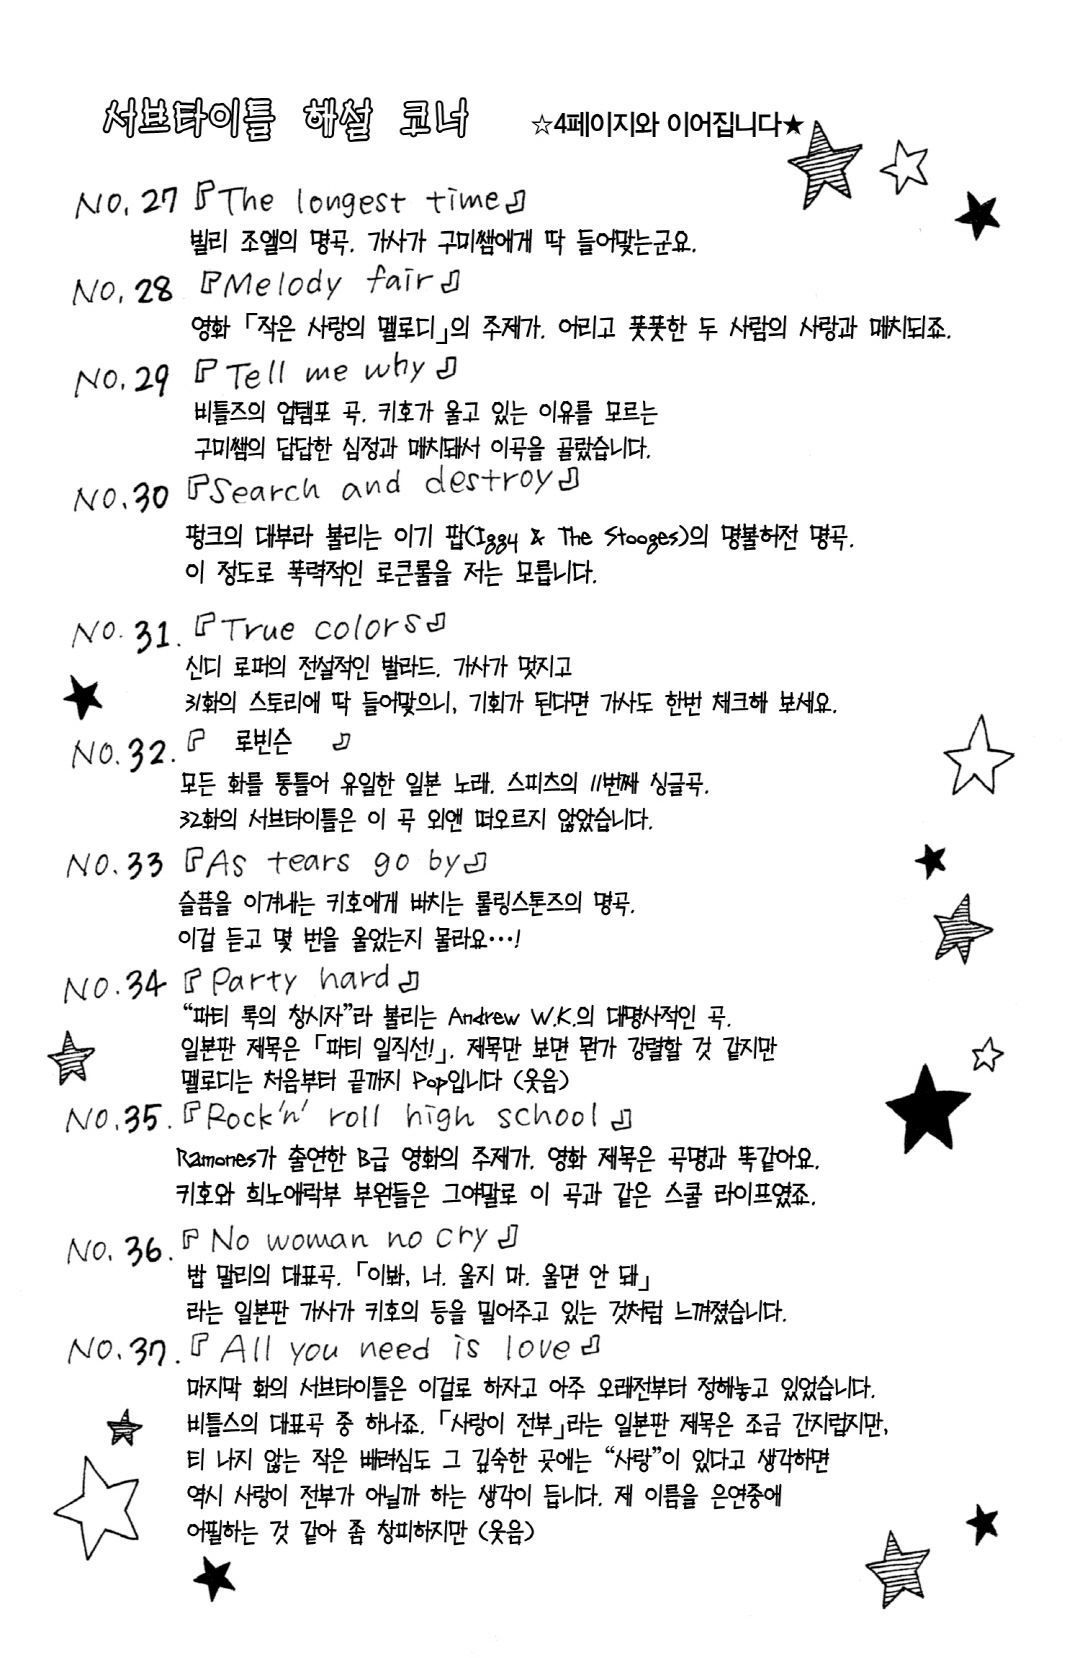 서브타이틀 해설 코너 ☆4페이지와 이어집니다★
NO.27 『The longest time』
빌리 조엘의 명곡. 가사가 구미쌤에게 딱 들어맞는군요.
NO.28 『Melody fair』
영화 「작은 사랑의 멜로디」의 주제가. 어리고 풋풋한 두 사람의 사랑과 매치되죠.
NO.29 『Tell me why』
비틀즈의 업템포 곡. 키호가 울고 있는 이유를 모르는
구미쌤의 답답한 심정과 매치돼서 이곡을 골랐습니다.
NO.30 『Search and destroy』
펑크의 대부라 불리는 이기 팝(Iggy & The Stooges)의 명불허전 명곡.
이 정도로 폭력적인 로큰롤을 저는 모릅니다.
NO.31. 『True colors』
신디 로퍼의 전설적인 발라드. 가사가 멋지고
31화의 스토리에 딱 들어맞으니, 기회가 된다면 가사도 한번 체크해 보세요.
NO.32. 『로빈슨』
모든 화를 통틀어 유일한 일본 노래. 스피츠의 11번째 싱글곡.
32화의 서브타이틀은 이 곡 외엔 떠오르지 않았습니다.
NO.33 『As tears go by』
슬픔을 이겨내는 키호에게 바치는 롤링스톤즈의 명곡.
이걸 듣고 몇 번을 울었는지 몰라요…!
NO.34 『Party hard』
“파티 록의 창시자”라 불리는 Andrew W.K.의 대명사적인 곡.
일본판 제목은 「파티 일직선!」. 제목만 보면 뭔가 강렬할 것 같지만
멜로디는 처음부터 끝까지 Pop입니다 (웃음)
NO.35. 『Rock'n' roll high school』
Ramones가 출연한 B급 영화의 주제가. 영화 제목은 곡명과 똑같아요.
키호와 희노애락부 부원들은 그야말로 이 곡과 같은 스쿨 라이프였죠.
NO.36. 『No woman no cry』
밥 말리의 대표곡. 「이봐, 너. 울지 마. 울면 안 돼」
라는 일본판 가사가 키호의 등을 밀어주고 있는 것처럼 느껴졌습니다.
NO.37. 『All you need is love』
마지막 화의 서브타이틀은 이걸로 하자고 아주 오래전부터 정해놓고 있었습니다.
비틀스의 대표곡 중 하나죠. 「사랑이 전부」라는 일본판 제목은 조금 간지럽지만,
티 나지 않는 작은 배려심도 그 깊숙한 곳에는 “사랑”이 있다고 생각하면
역시 사랑이 전부가 아닐까 하는 생각이 듭니다. 제 이름을 은연중에
어필하는 것 같아 좀 창피하지만 (웃음)